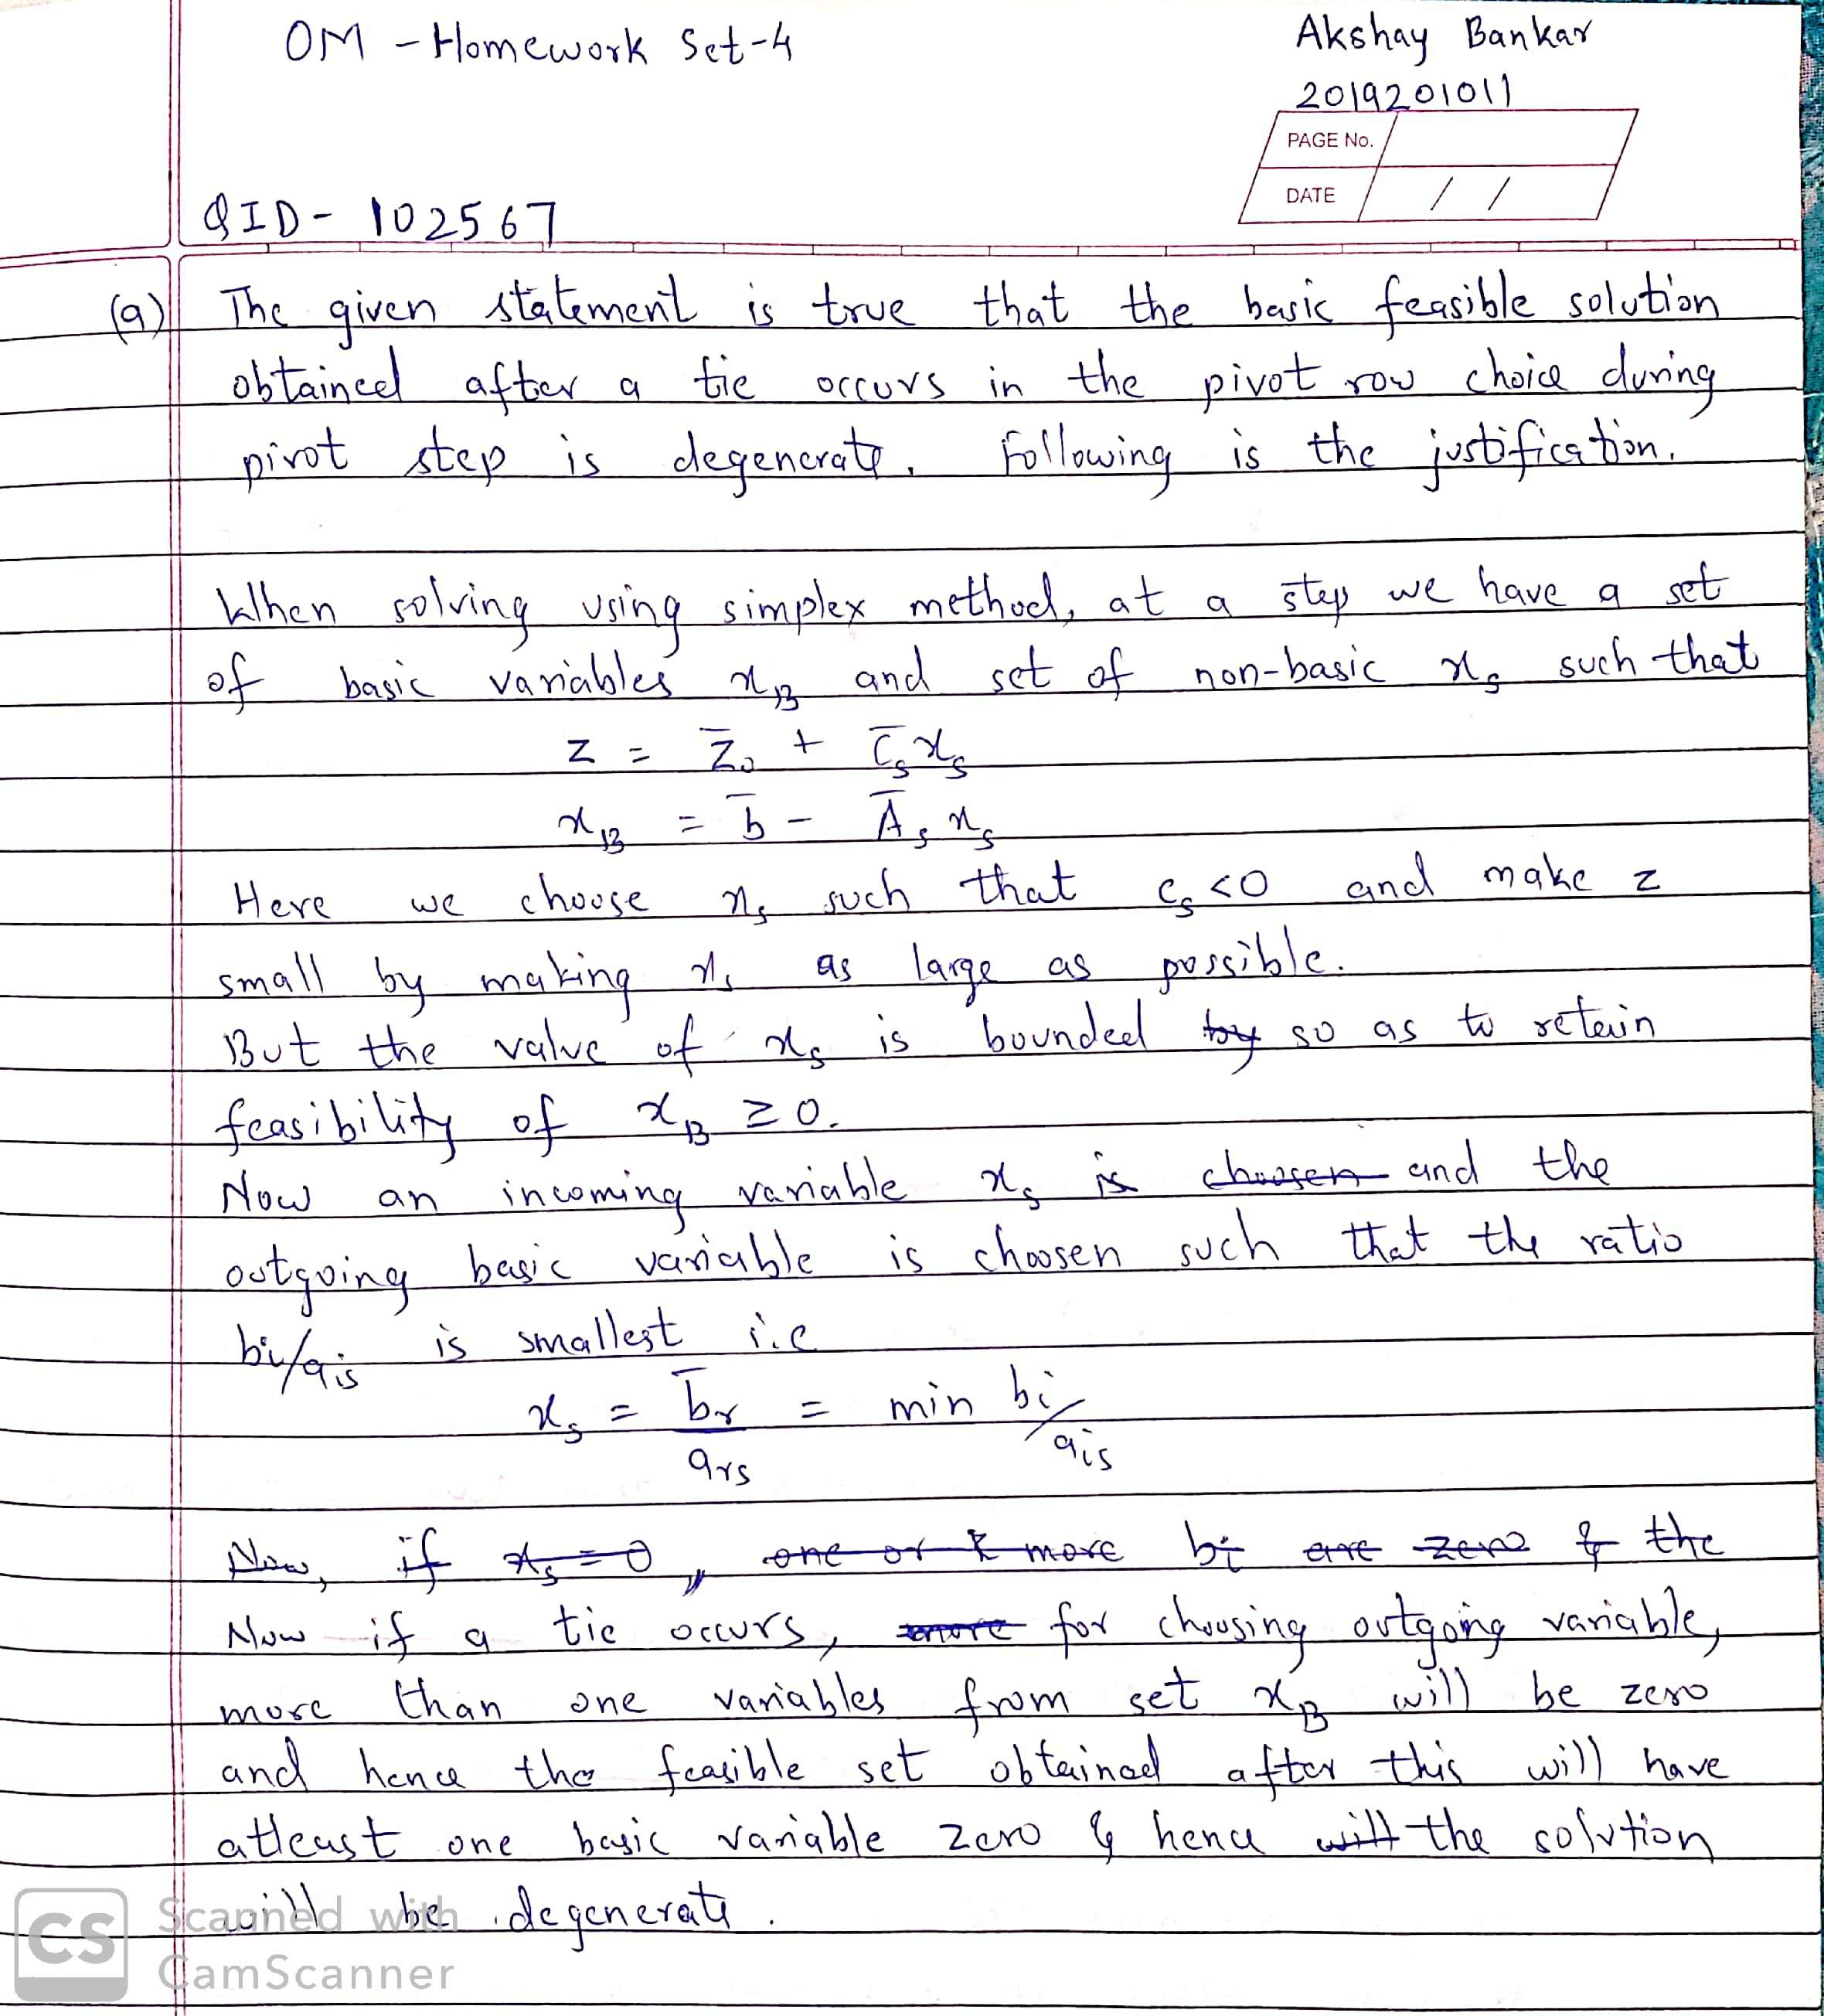 OM - Homework Set-4
Akshay Bankar
2019201011
PAGE No.
DATE / /
QID - 102567
(a) The given statement is true that the basic feasible solution
obtained after a tie occurs in the pivot row choice during
pivot step is degenerate. Following is the justification.
When solving using simplex method, at a step we have a set
of basic variables x_B and set of non-basic x_s such that
z = z̄₀ + c̄_s x_s
x_B = b̄ - Ā_s x_s
Here we choose x_s such that c_s <0 and make z
small by making x_s as large as possible.
But the value of x_s is bounded by so as to retain
feasibility of x_B ≥ 0.
Now an incoming variable x_s is choosen and the
outgoing basic variable is choosen such that the ratio
bi/ais is smallest i.e
x_s = b̄r / ars = min bi/ais
Now, if x_s = 0, one or more bi are zero & the
Now if a tie occurs, more for choosing outgoing variable,
more than one variables from set x_B will be zero
and hence the feasible set obtained after this will have
atleast one basic variable zero & hence will the solution
will be degenerate.
CS Scanned with
CamScanner